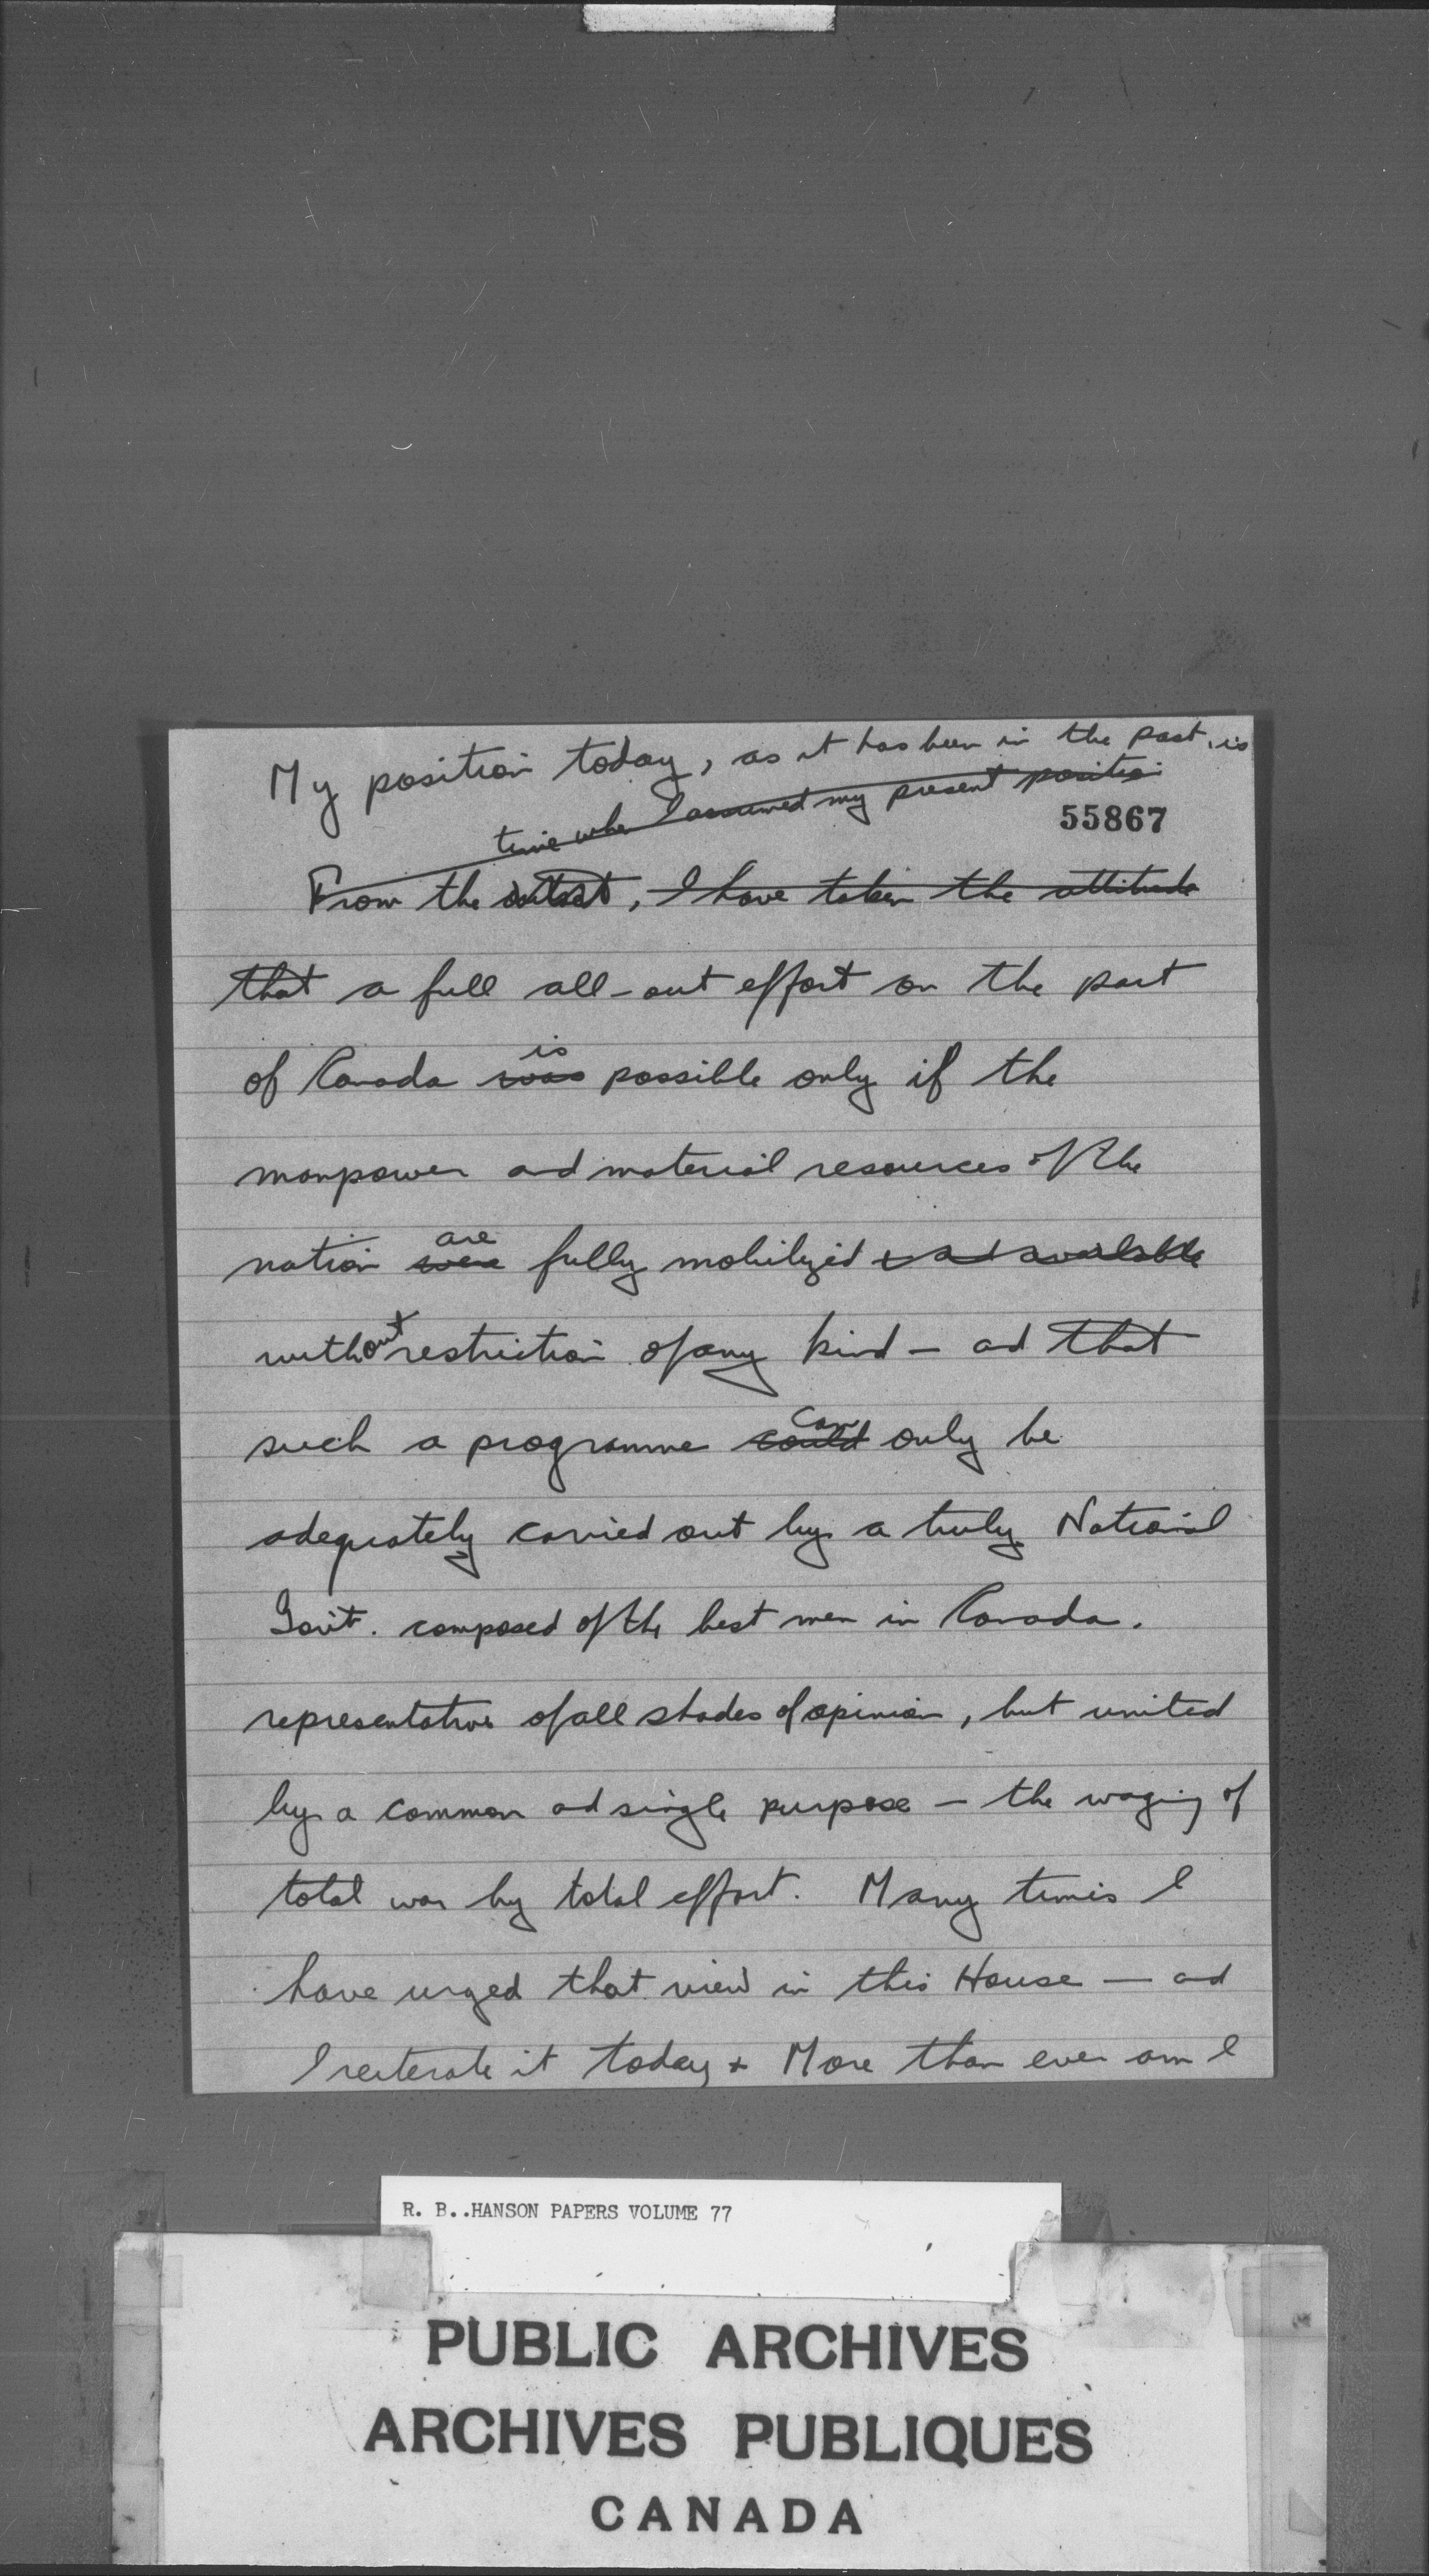 My position today, as it has been in the past, is
time when I assumed my present position
55867
From the outset, I have taken the attitude
that a full all-out effort on the part
is
of Canada was possible only if the
manpower and material resources of the
are
nation were fully mobilized & and available
without restriction of any kind - and that
can
such a programme could only be
adequately carried out by a truly National
Gov't. composed of the best men in Canada.
representative of all shades of opinion, but united
by a common and single purpose - the waging of
total war by total effort. Many times I
have urged that view in this House - and
I reiterate it today & More than ever am I
R. B..HANSON PAPERS VOLUME 77
PUBLIC ARCHIVES
ARCHIVES PUBLIQUES
CANADA